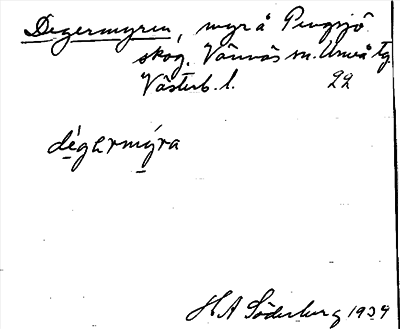 Degermyren, myr å Pengsjö
skog, Vännäs sn. Umeå tg
Västerb. l. 22
dégermýra
H A Söderberg 1934